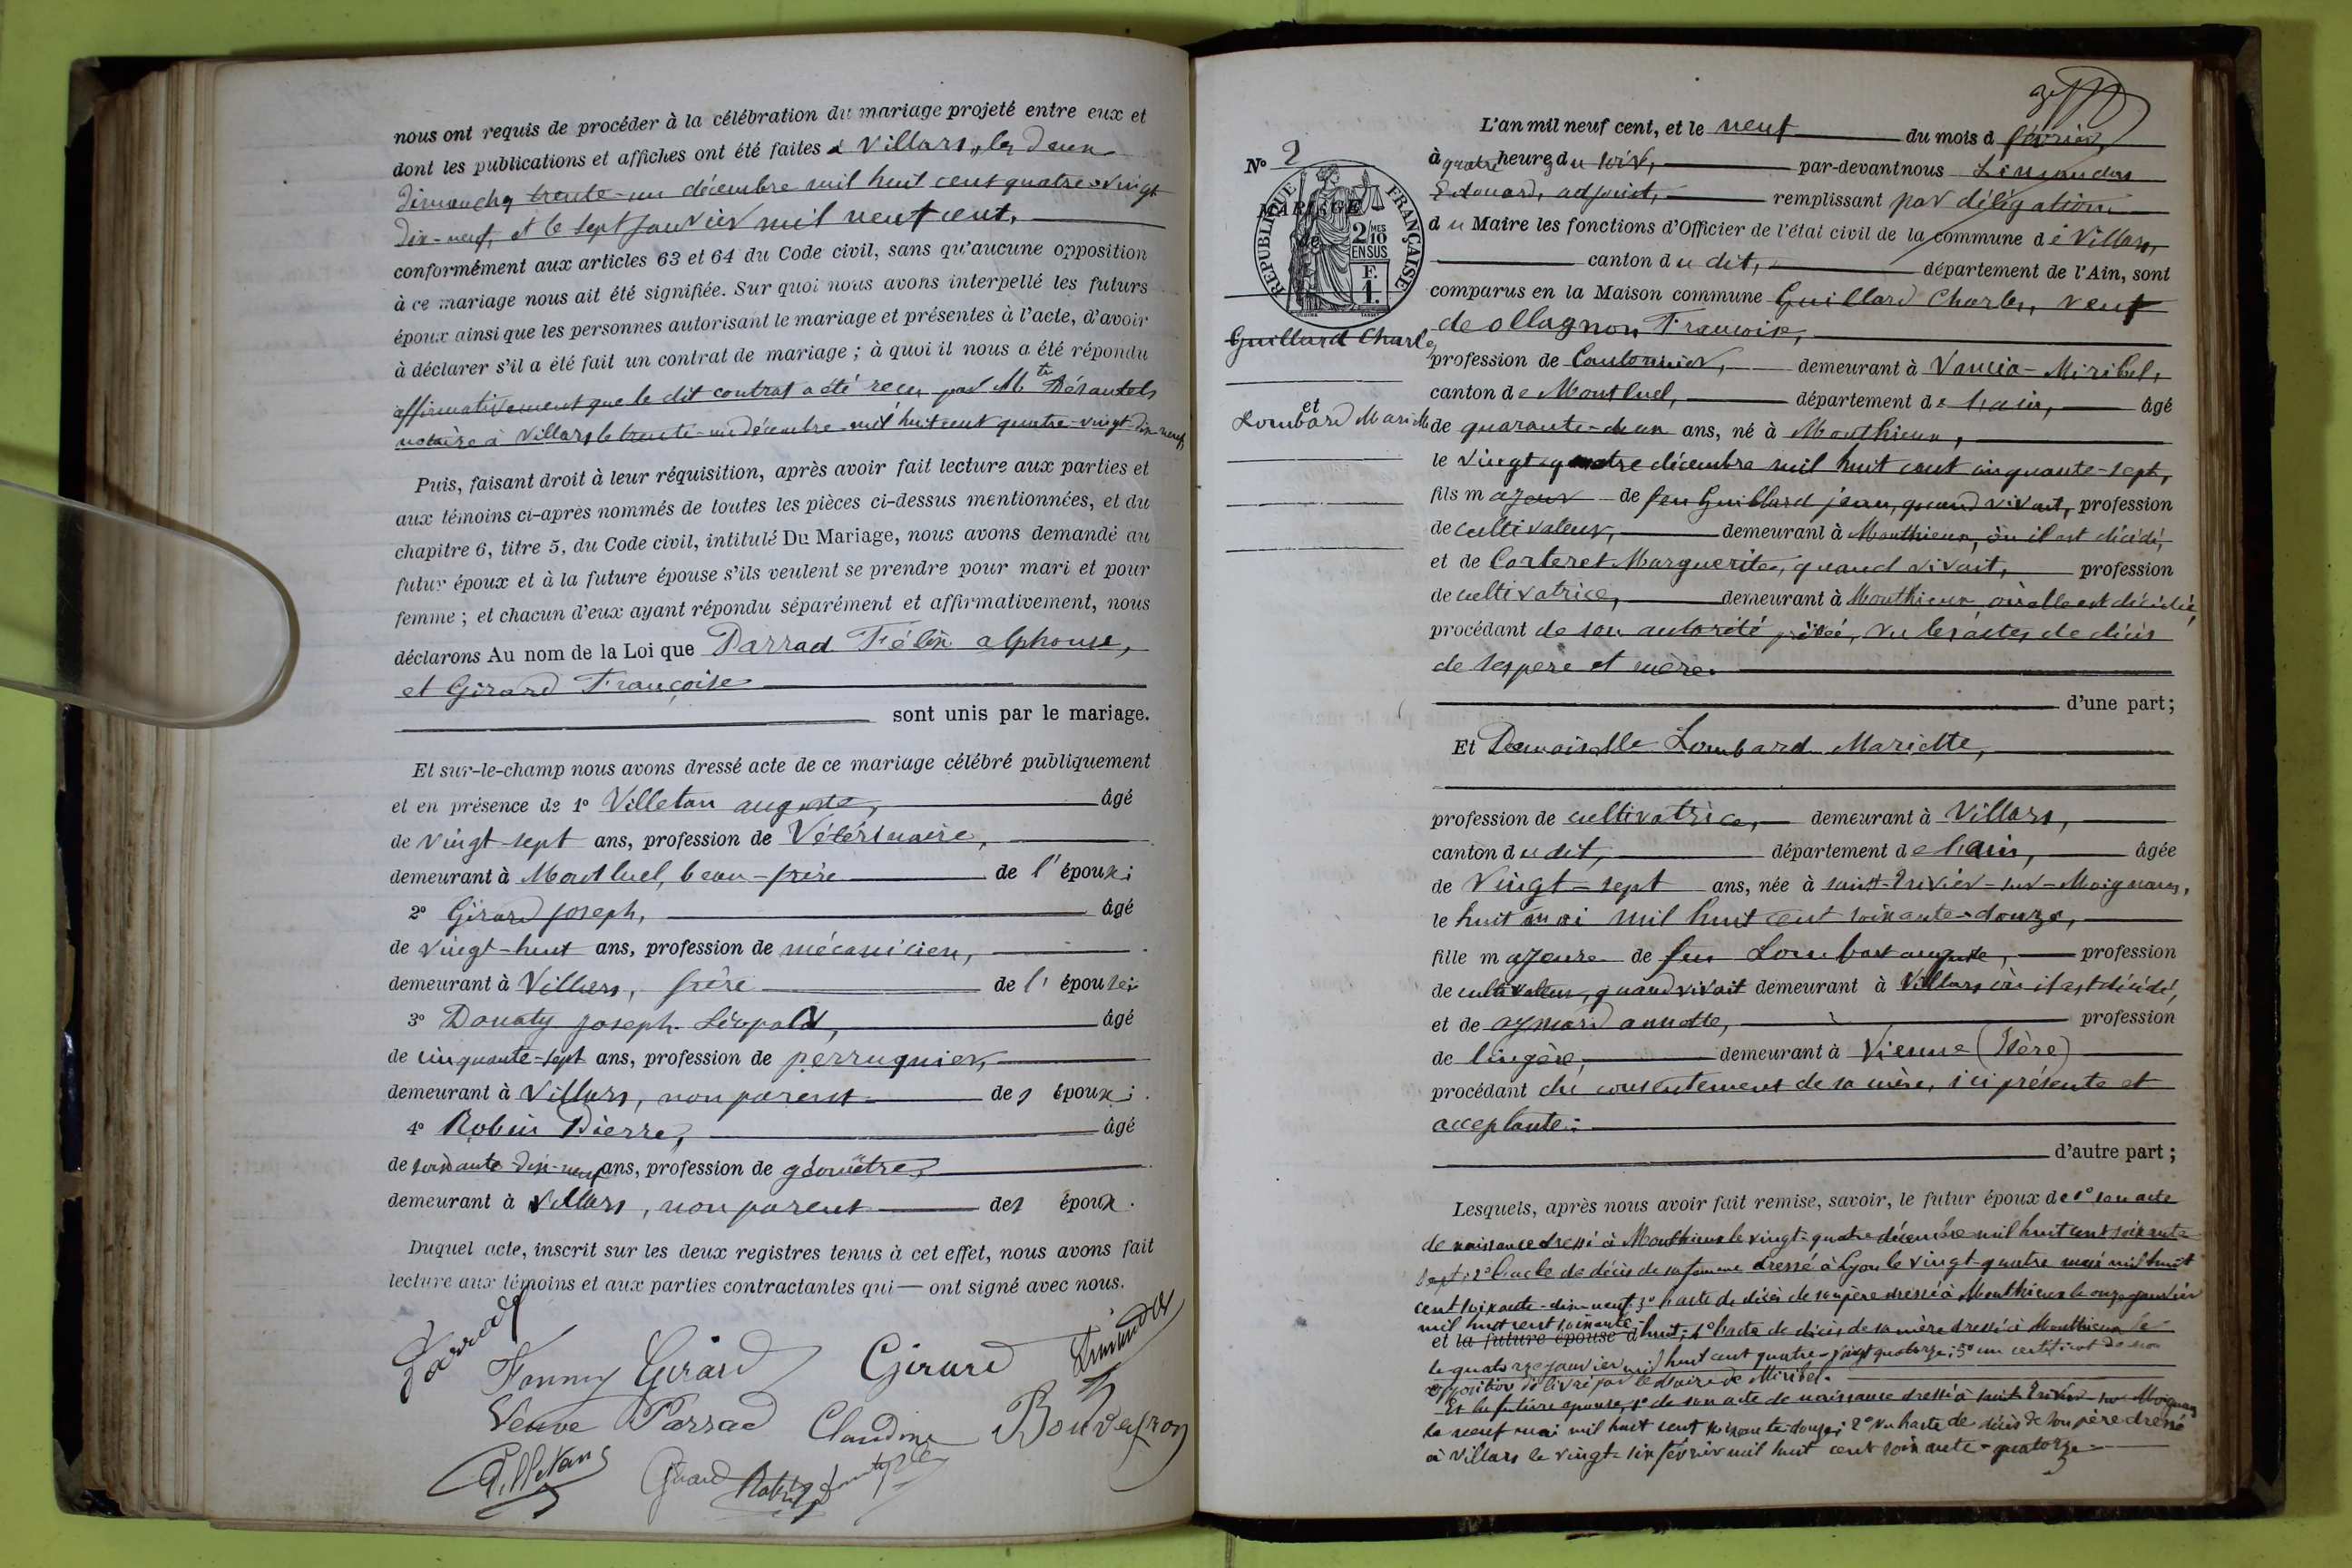 nous ont requis de procéder à la célébration du mariage projeté entre eux et
dont les publications et affiches ont été faites à Villars, les deux
dimanches trente-un décembre mil huit cent quatre-vingt
dix-neuf, et le sept janvier mil neuf cent,
conformément aux articles 63 et 64 du Code civil, sans qu'aucune opposition
à ce mariage nous ait été signifiée. Sur quoi nous avons interpellé les futurs
époux ainsi que les personnes autorisant le mariage et présentes à l'acte, d'avoir
à déclarer s'il a été fait un contrat de mariage ; à quoi il nous a été répondu
affirmativement que le dit contrat a été reçu par Mtr
notaire à Villars le trente-un décembre mil huit cent quatre-vingt-dix-neuf
Puis, faisant droit à leur réquisition, après avoir fait lecture aux parties et
aux témoins ci-après nommés de toutes les pièces ci-dessus mentionnées, et du
chapitre 6, titre 5, du Code civil, intitulé Du Mariage, nous avons demandé au
futur époux et à la future épouse s'ils veulent se prendre pour mari et pour
femme ; et chacun d'eux ayant répondu séparément et affirmativement, nous
déclarons Au nom de la Loi que Parrad Félix alphonse,
et Girard Françoise
sont unis par le mariage.
Et sur-le-champ nous avons dressé acte de ce mariage célébré publiquement
et en présence de 1° Villetan auguste, âgé
de vingt-sept ans, profession de Vétérinaire,
demeurant à Montluel, beau-frère de l'époux;
2° Girard joseph, âgé
de vingt-huit ans, profession de mécanicien,
demeurant à Villars, frère de l'épouse;
3° Donaty joseph Léopold, âgé
de cinquante-sept ans, profession de perruquier,
demeurant à Villars, non parent des époux;
4° Robin Pierre, âgé
de soixante-dix-neuf ans, profession de géomètre,
demeurant à Villars, non parent des époux.
Duquel acte, inscrit sur les deux registres tenus à cet effet, nous avons fait
lecture aux témoins et aux parties contractantes qui — ont signé avec nous.
Parrad
Fanny Girard Girard Limandas
Veuve Parrad Claudine Bouveyron
Villetan Girard Robin
N° 2
MARIAGE
de
RÉPUBLIQUE FRANÇAISE
2/10 MES
EN SUS
F.
1.
Guillard Charles
et
Lombard Mariette
L'an mil neuf cent, et le neuf du mois d février,
à quatre heures du soir, par-devant nous Limandas
Edouard, adjoint, remplissant par délégation
du Maire les fonctions d'Officier de l'état civil de la commune de Villars,
canton du dit, département de l'Ain, sont
comparus en la Maison commune Guillard Charles, veuf
de ollagnon Françoise,
profession de Cantonnier, demeurant à Vancia-Miribel,
canton de Montluel, département de l'ain, âgé
de quarante-deux ans, né à Monthieux,
le vingt-quatre décembre mil huit cent cinquante-sept,
fils majeur de feu Guillard jean, quand vivait, profession
de cultivateur, demeurant à Monthieux, où il est décédé,
et de Corteret Marguerite, quand vivait, profession
de cultivatrice, demeurant à Monthieux, où elle est décédée,
procédant de son autorité privée, vu les actes de décès
de ses père et mère.
d'une part;
Et Demoiselle Lombard Mariette,
profession de cultivatrice, demeurant à Villars,
canton du dit, département de l'ain, âgée
de Vingt-sept ans, née à saint-Trivier-sur-Moignans,
le huit mai mil huit cent soixante-douze,
fille majeure de feu Lombard auguste, profession
de cultivateur, quand vivait demeurant à Villars où il est décédé,
et de aymard annette, profession
de lingère, demeurant à Vienne (Isère)
procédant du consentement de sa mère, ici présente et
acceptante;
d'autre part;
Lesquels, après nous avoir fait remise, savoir, le futur époux de 1° son acte
de naissance dressé à Monthieux le vingt-quatre décembre mil huit cent soixante
sept; 2° l'acte de décès de sa femme dressé à Lyon le vingt-quatre mai mil huit
cent soixante-dix-neuf; 3° l'acte de décès de son père dressé à Monthieux le onze janvier
mil huit cent soixante-
et la future épouse d huit; 4° l'acte de décès de sa mère dressé à Monthieux le
le quatorze janvier mil huit cent quatre-vingt quatorze; 5° un certificat de non
opposition délivré par le Maire de Miribel.
Et la future épouse, 1° de son acte de naissance dressé à saint-Trivier-sur-Moignans
le neuf mai mil huit cent soixante-douze; 2° vu l'acte de décès de son père dressé
à Villars le vingt-six février mil huit cent soixante-quatorze